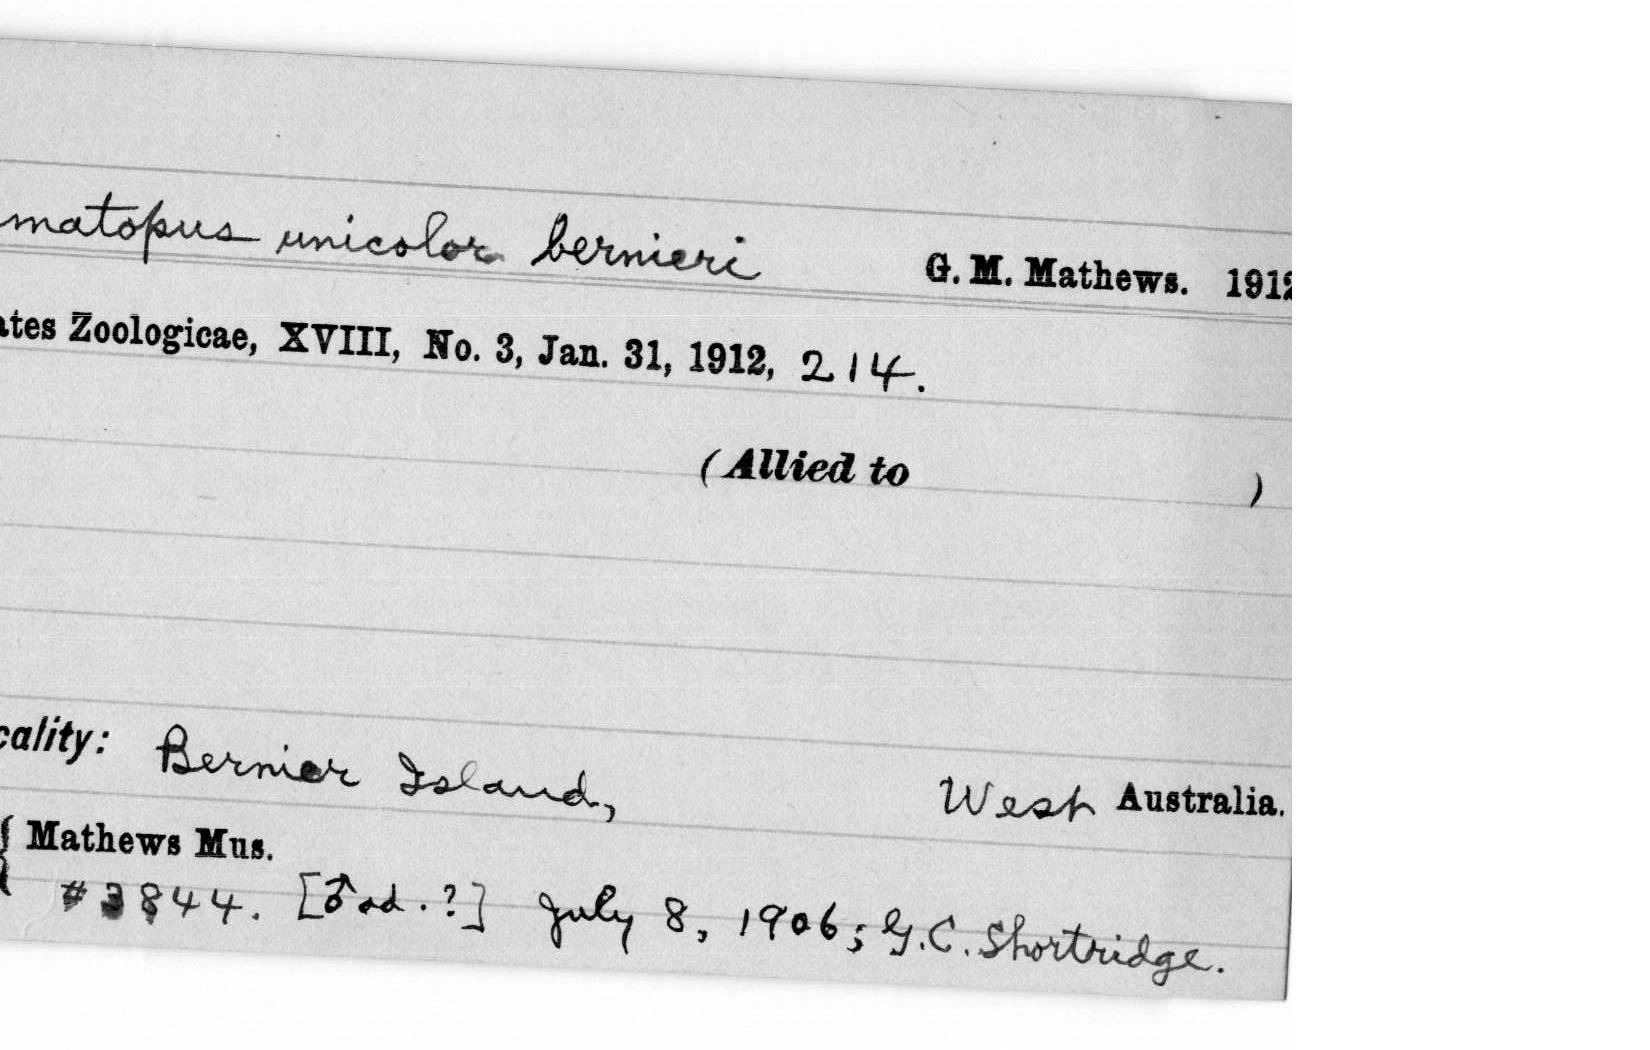 matopus unicolor bernieri G. M. Mathews. 1912
ates Zoologicae, XVIII, No. 3, Jan. 31, 1912, 214.
(Allied to )
cality: Bernier Island, West Australia.
{ Mathews Mus.
#3844. [♂ ad. ?] July 8, 1906; G. C. Shortridge.